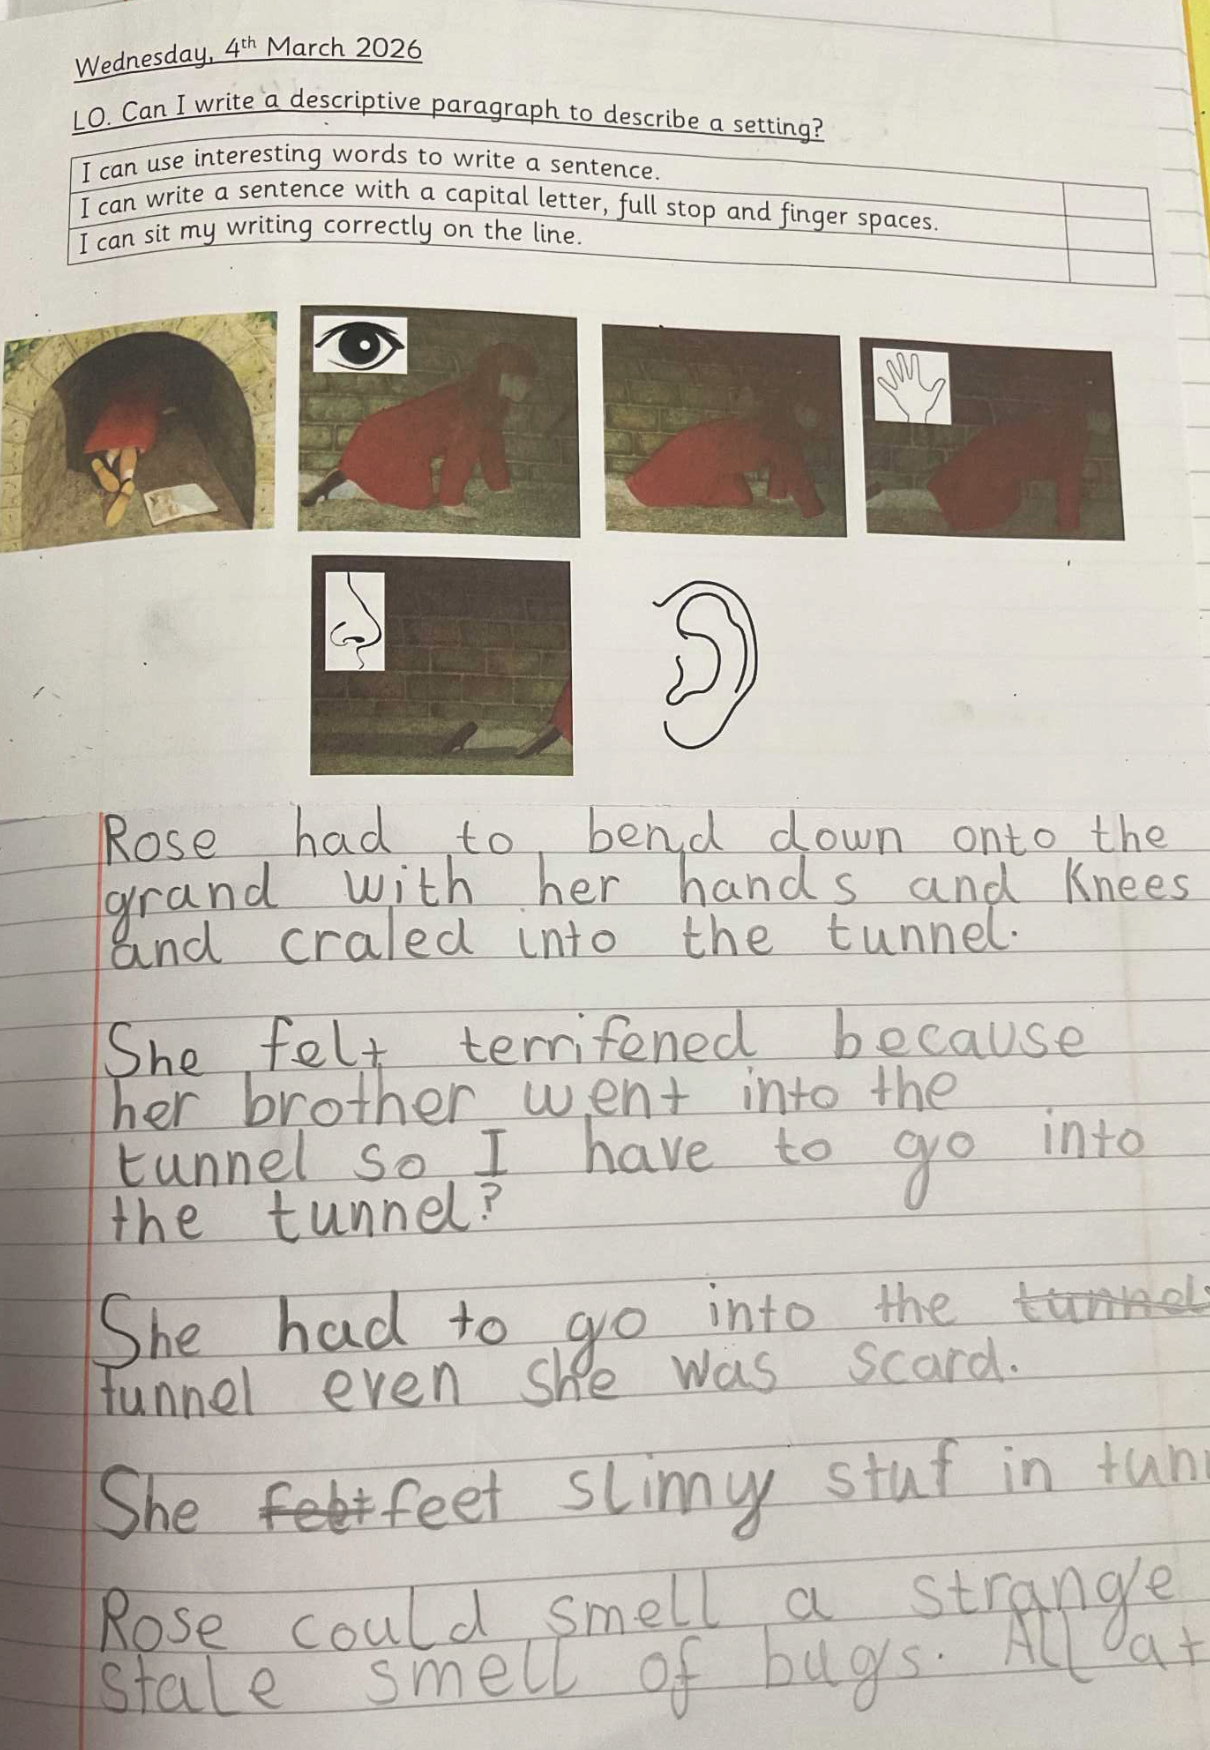 Wednesday, 4th March 2026
LO. Can I write a descriptive paragraph to describe a setting?
I can use interesting words to write a sentence.
I can write a sentence with a capital letter, full stop and finger spaces.
I can sit my writing correctly on the line.
Rose had to bend down onto the
grand with her hands and Knees
and craled into the tunnel.
She felt terrifened because
her brother went into the
tunnel so I have to go into
the tunnel?
She had to go into the tunnel
tunnel even she was scard.
She felt feet slimy stuf in tun
Rose could smell a strange
stale smell of bugs. All at